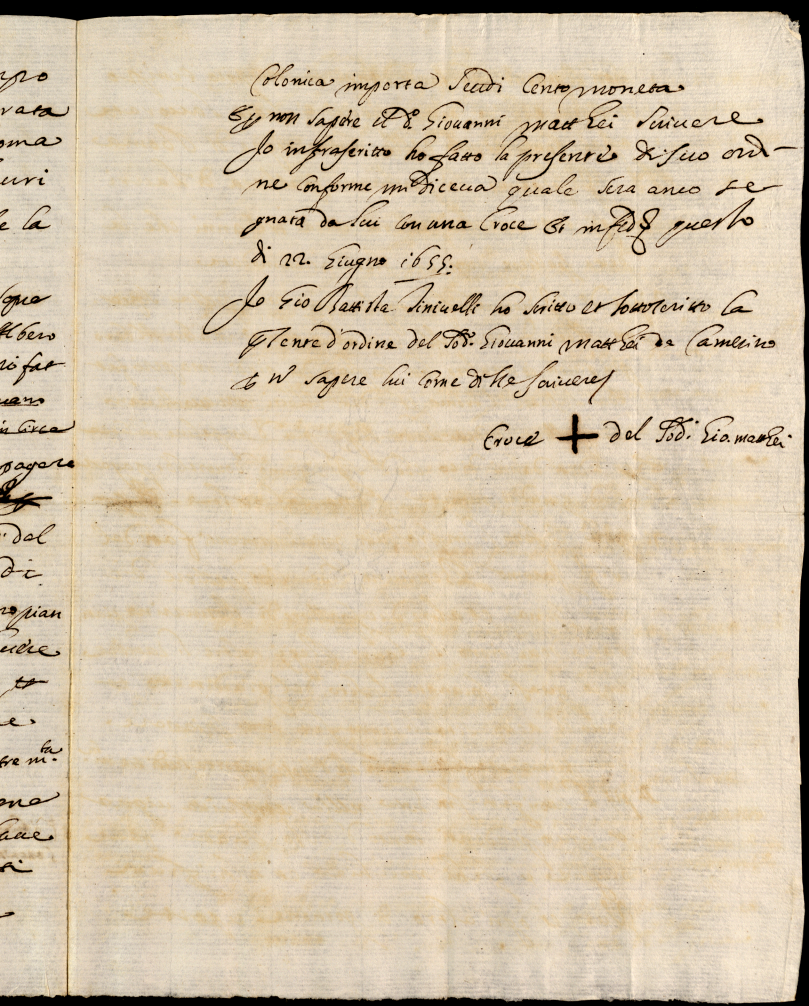 pro
rata
oma
uri
e la
que
lbero
ri fat
in circa
pagare
del
di
pian
tre m.ta
ene
Colonica importa Scudi Cento moneta
Et p non sapere il d.o Giouanni Matthei Scriuere
Io infrascritto ho fatto la presente di suo ordi-
ne conforme mi diceua quale sera anco se-
gnata da lui con una Croce et in fede questo
di 22. Giugno 1655.
Io Gio Battista Siniuelli ho scritto et sottoscritto la
pñte d'ordine del Sod.o Giouanni Matthei da Camerino
p nõ sapere lui come disse scriuere
Croce + del Sod.o Gio. Matthei